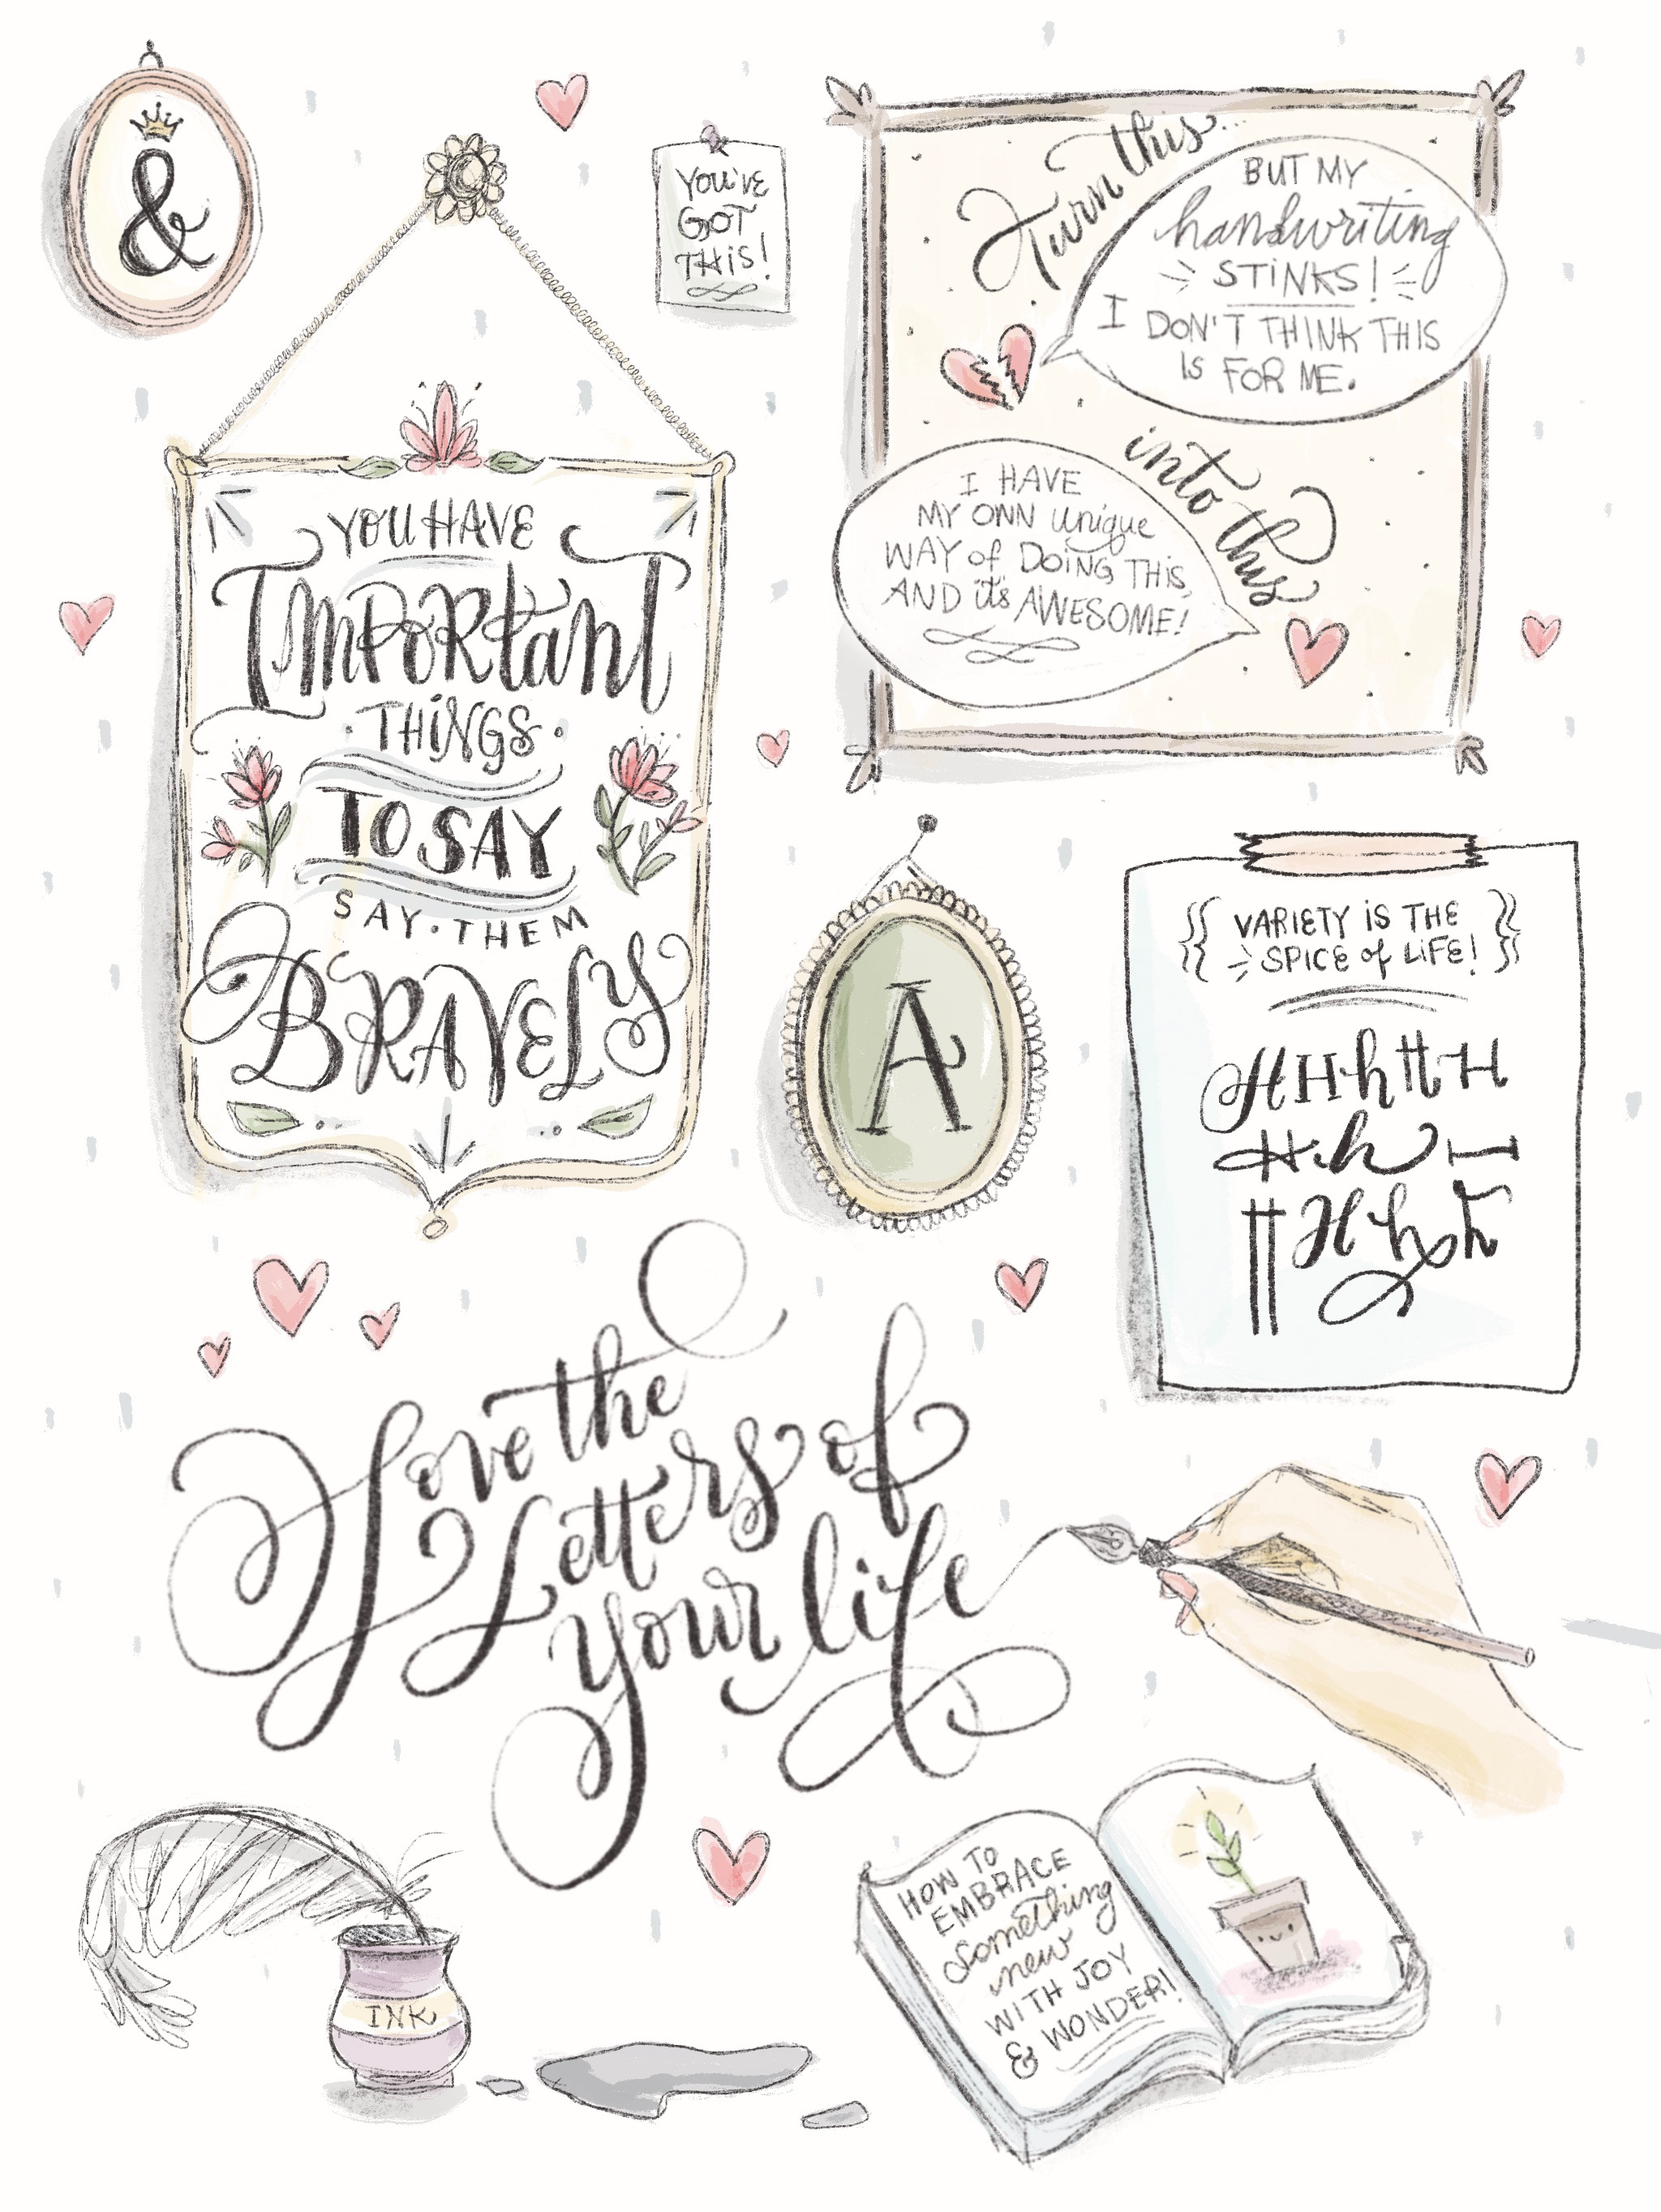 &
YOU'VE
GOT
THIS!
Turn this...
BUT MY
handwriting
STINKS!
I DON'T THINK THIS
IS FOR ME.
into this
I HAVE
MY OWN unique
WAY of DOING THIS,
AND it's AWESOME!
YOU HAVE
IMPORtanT
THINGS
TO SAY
SAY·THEM
BRAVELY
A
VARIETY iS THE
SPICE of LiFE!
H H h H H
H h H
H H h h
Love the
Letters of
your life
INK
HOW TO
EMBRACE
something
new
WITH JOY
& WONDER!